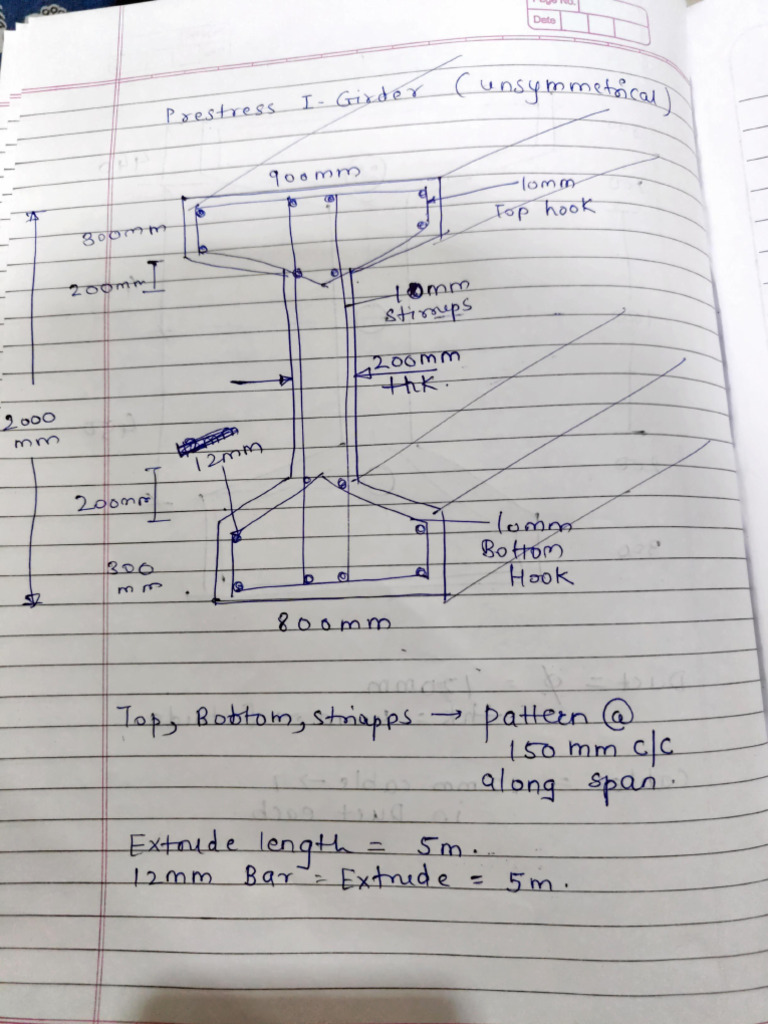 Page No.
Date
Prestress I-Girder (unsymmetrical)
900mm
10mm
Top hook
300mm
200mm
10mm
stirrups
200mm
thk.
2000
mm
12mm
200mm
10mm
Bottom
Hook
300
mm
800mm
Top, Bobtom, striapps → pattern @
150 mm c/c
along span.
Extrude length = 5m.
12mm Bar = Extrude = 5m.